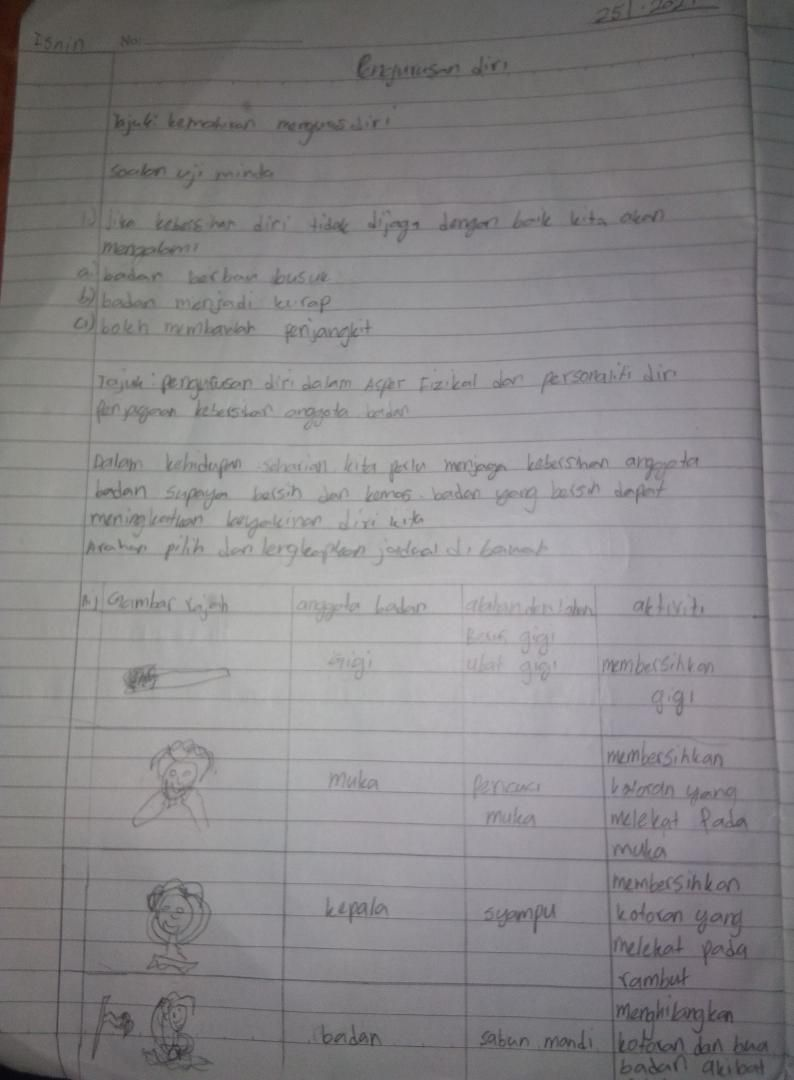 25/
Isnin No:
Pengurusan diri
Tajuk: kemahiran mengurus diri
Soalan uji minda
1) Jika kebersihan diri tidak dijaga dengan baik kita akan
mengalami
a) badan berbau busuk
b) badan menjadi kurap
c) boleh membawah penjangkit
Tajuk: pengurusan diri dalam Asper Fizikal dan personaliti diri
Penjagaan kebersihan anggota badan
Dalam kehidupan seharian kita perlu menjaga kebersihan anggota
badan supaya bersih dan kemas. badan yang bersih dapat
meningkatkan keyakinan diri kita
Arahan pilih dan lengkapkan jadual di bawah
A) Gambar rajah anggota badan alatan dan bahan aktiviti
Gigi Berus gigi ubat gigi membersihkan gigi
muka Pencuci muka membersihkan kotoran yang melekat Pada muka
kepala syampu membersihkan kotoran yang melekat pada rambut
badan sabun mandi menghilangkan kotoran dan bua badan akibat